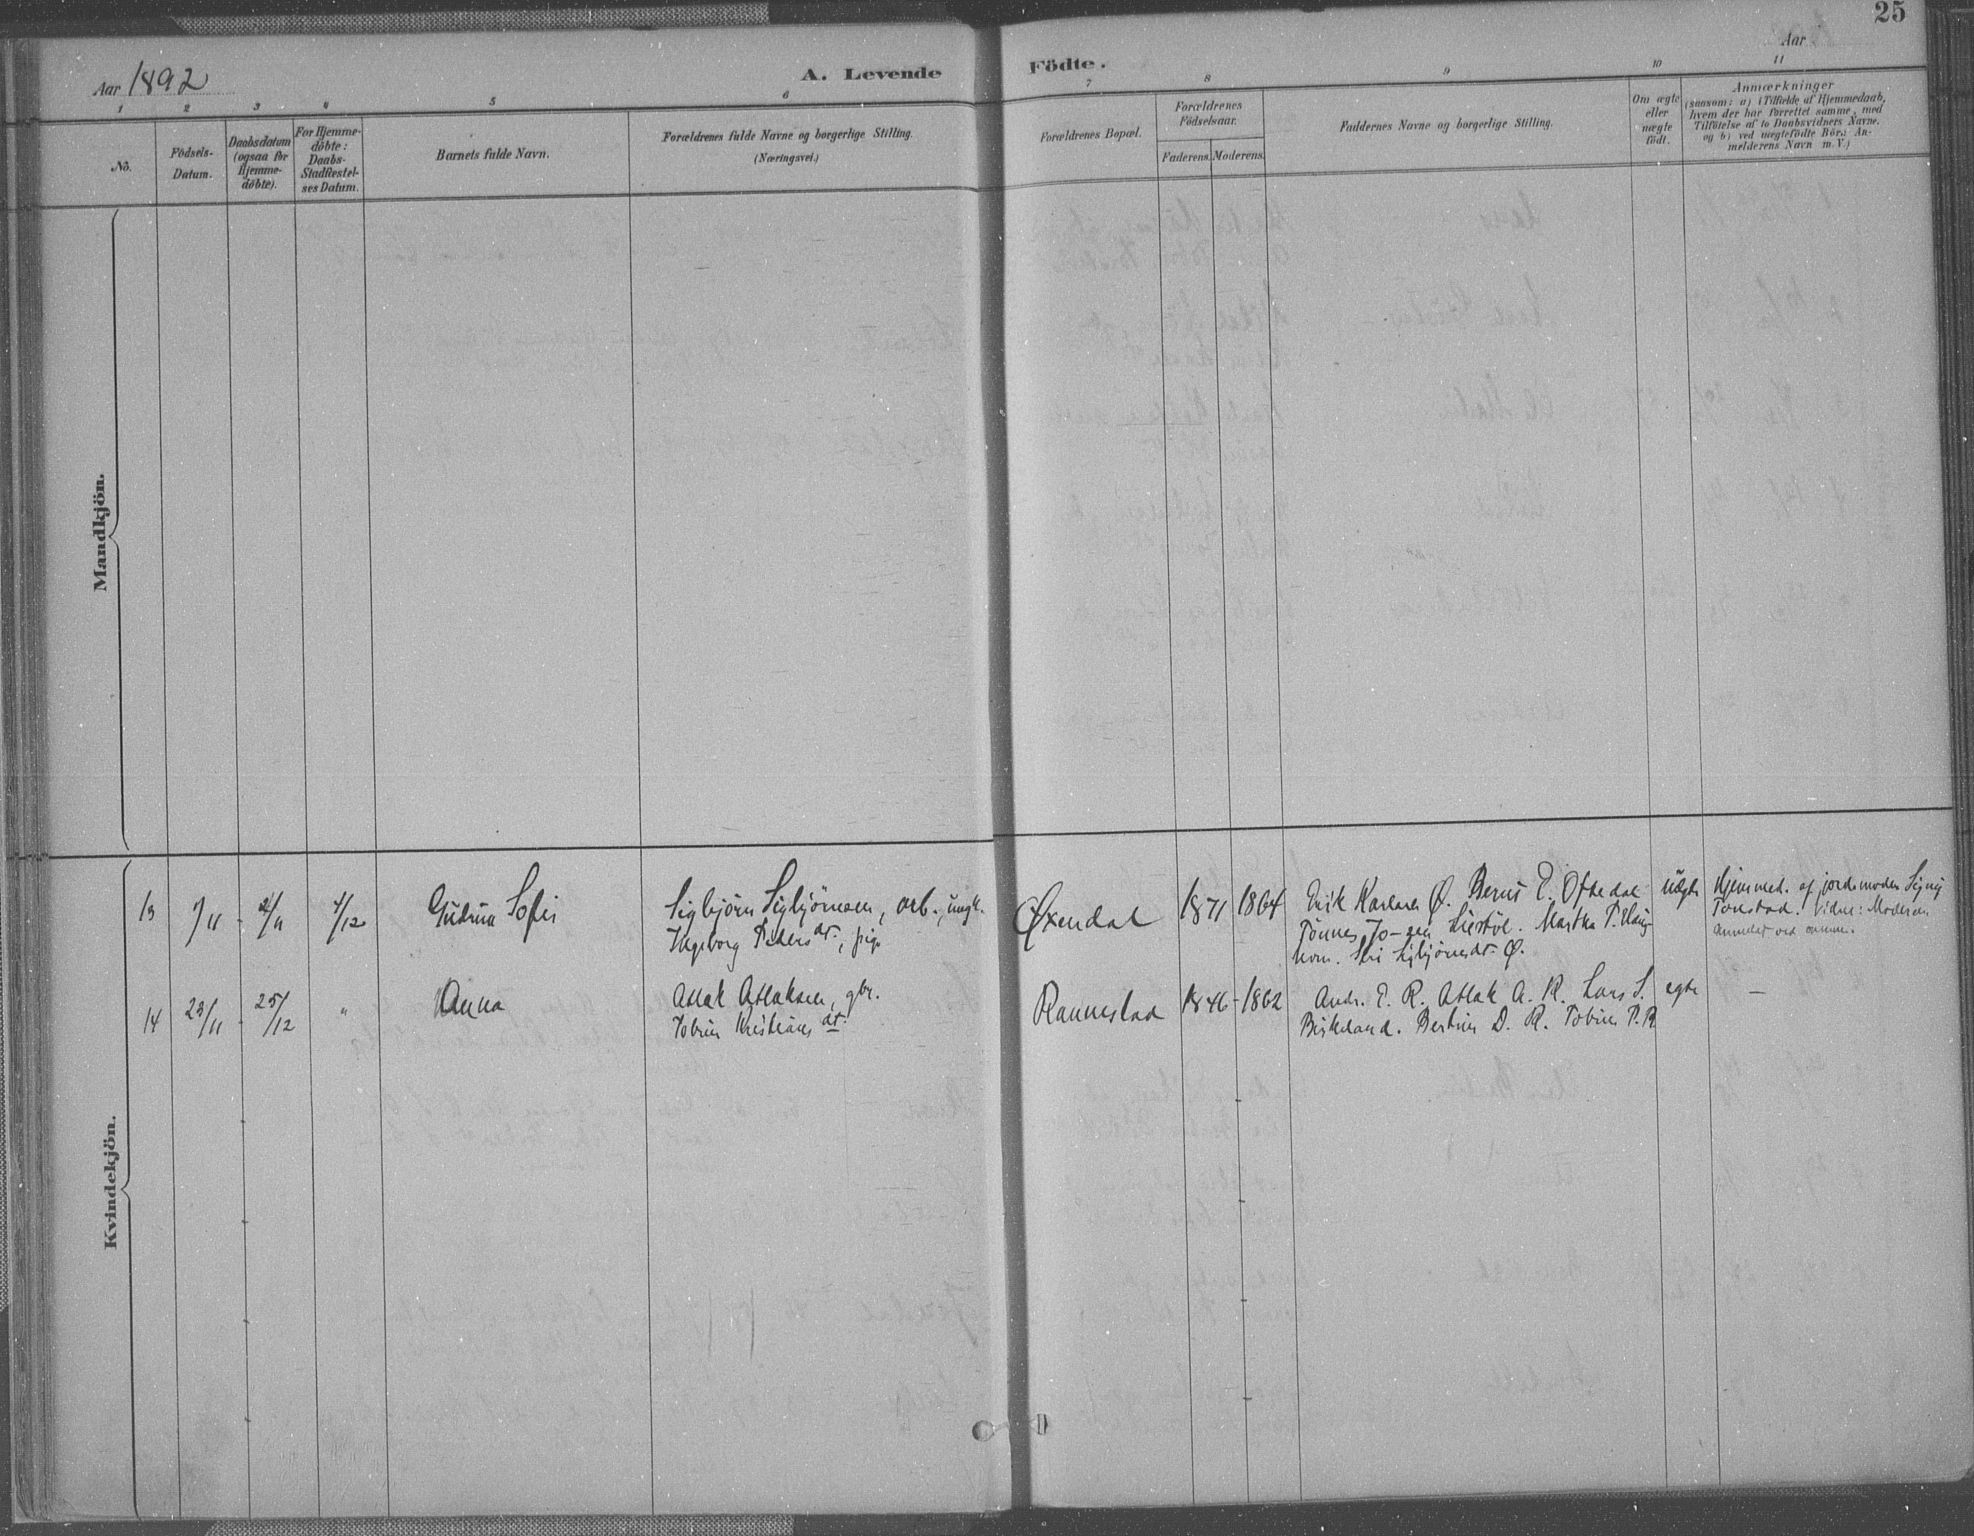 25
Aar 1892
A. Levende
Födte.
Aar
1
2
3
4
5
6
7
8
9
10
11
Nô.
Födsels-
Datum.
Daabsdatum
(ogsaa for
Hjemme-
döbte).
For Hjemme-
döbte:
Daabs-
Stadfæstel-
ses Datum.
Barnets fulde Navn.
Forældrenes fulde Navne og borgerlige Stilling.
(Næringsvei.)
Forældrenes Bopæl.
Forældrenes
Födselsaar.
Faderens.
Moderens.
Faddernes Navne og borgerlige Stilling.
Om ægte
eller
uægte
födt.
Anmærkninger
(saasom: a) i Tilfælde af Hjemmedaab,
hvem der har forrettet samme, med
Tilföielse af to Daabsvidners Navne.
og b) ved uægtefödte Börn: An-
melderens Navn m. V.)
Mandkjön.
Kvindekjön.
13
7/11
4/12
Gudrun Sofie
Sigbjörn Sigbjörnsen, arb., ungk.
Ingeborg Pedersdr., pige
Øxendal
1871
1864
Erik Karlsen Ø. Bernt E. Oftedal
Tönnes Jo-sen Liestöl. Martha T. Haug-
hom. Siri Sigbjörnsdr. Ø.
uægte
Hjemmed. af jordemoder Signy
Tonstad. Vidne: Moderen
14
23/11
25/12
"
Anna
Atlak Atlaksen, gbr.
Tobine Kristiansdr.
Rannestad
1846
1862
Andr. E. R. Atlak A. R. Lars S.
Birkeland. Bertine D. R. Tobine T. R
egte
—